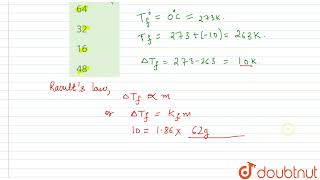 64
32
16
48
T°f = 0°C = 273K.
Tf = 273+(-10) = 263K
ΔTf = 273-263 = 10K.
Raoult's law,
ΔTf ∝ m
or ΔTf = Kf m
10 = 1.86 x 62g
doubtnut